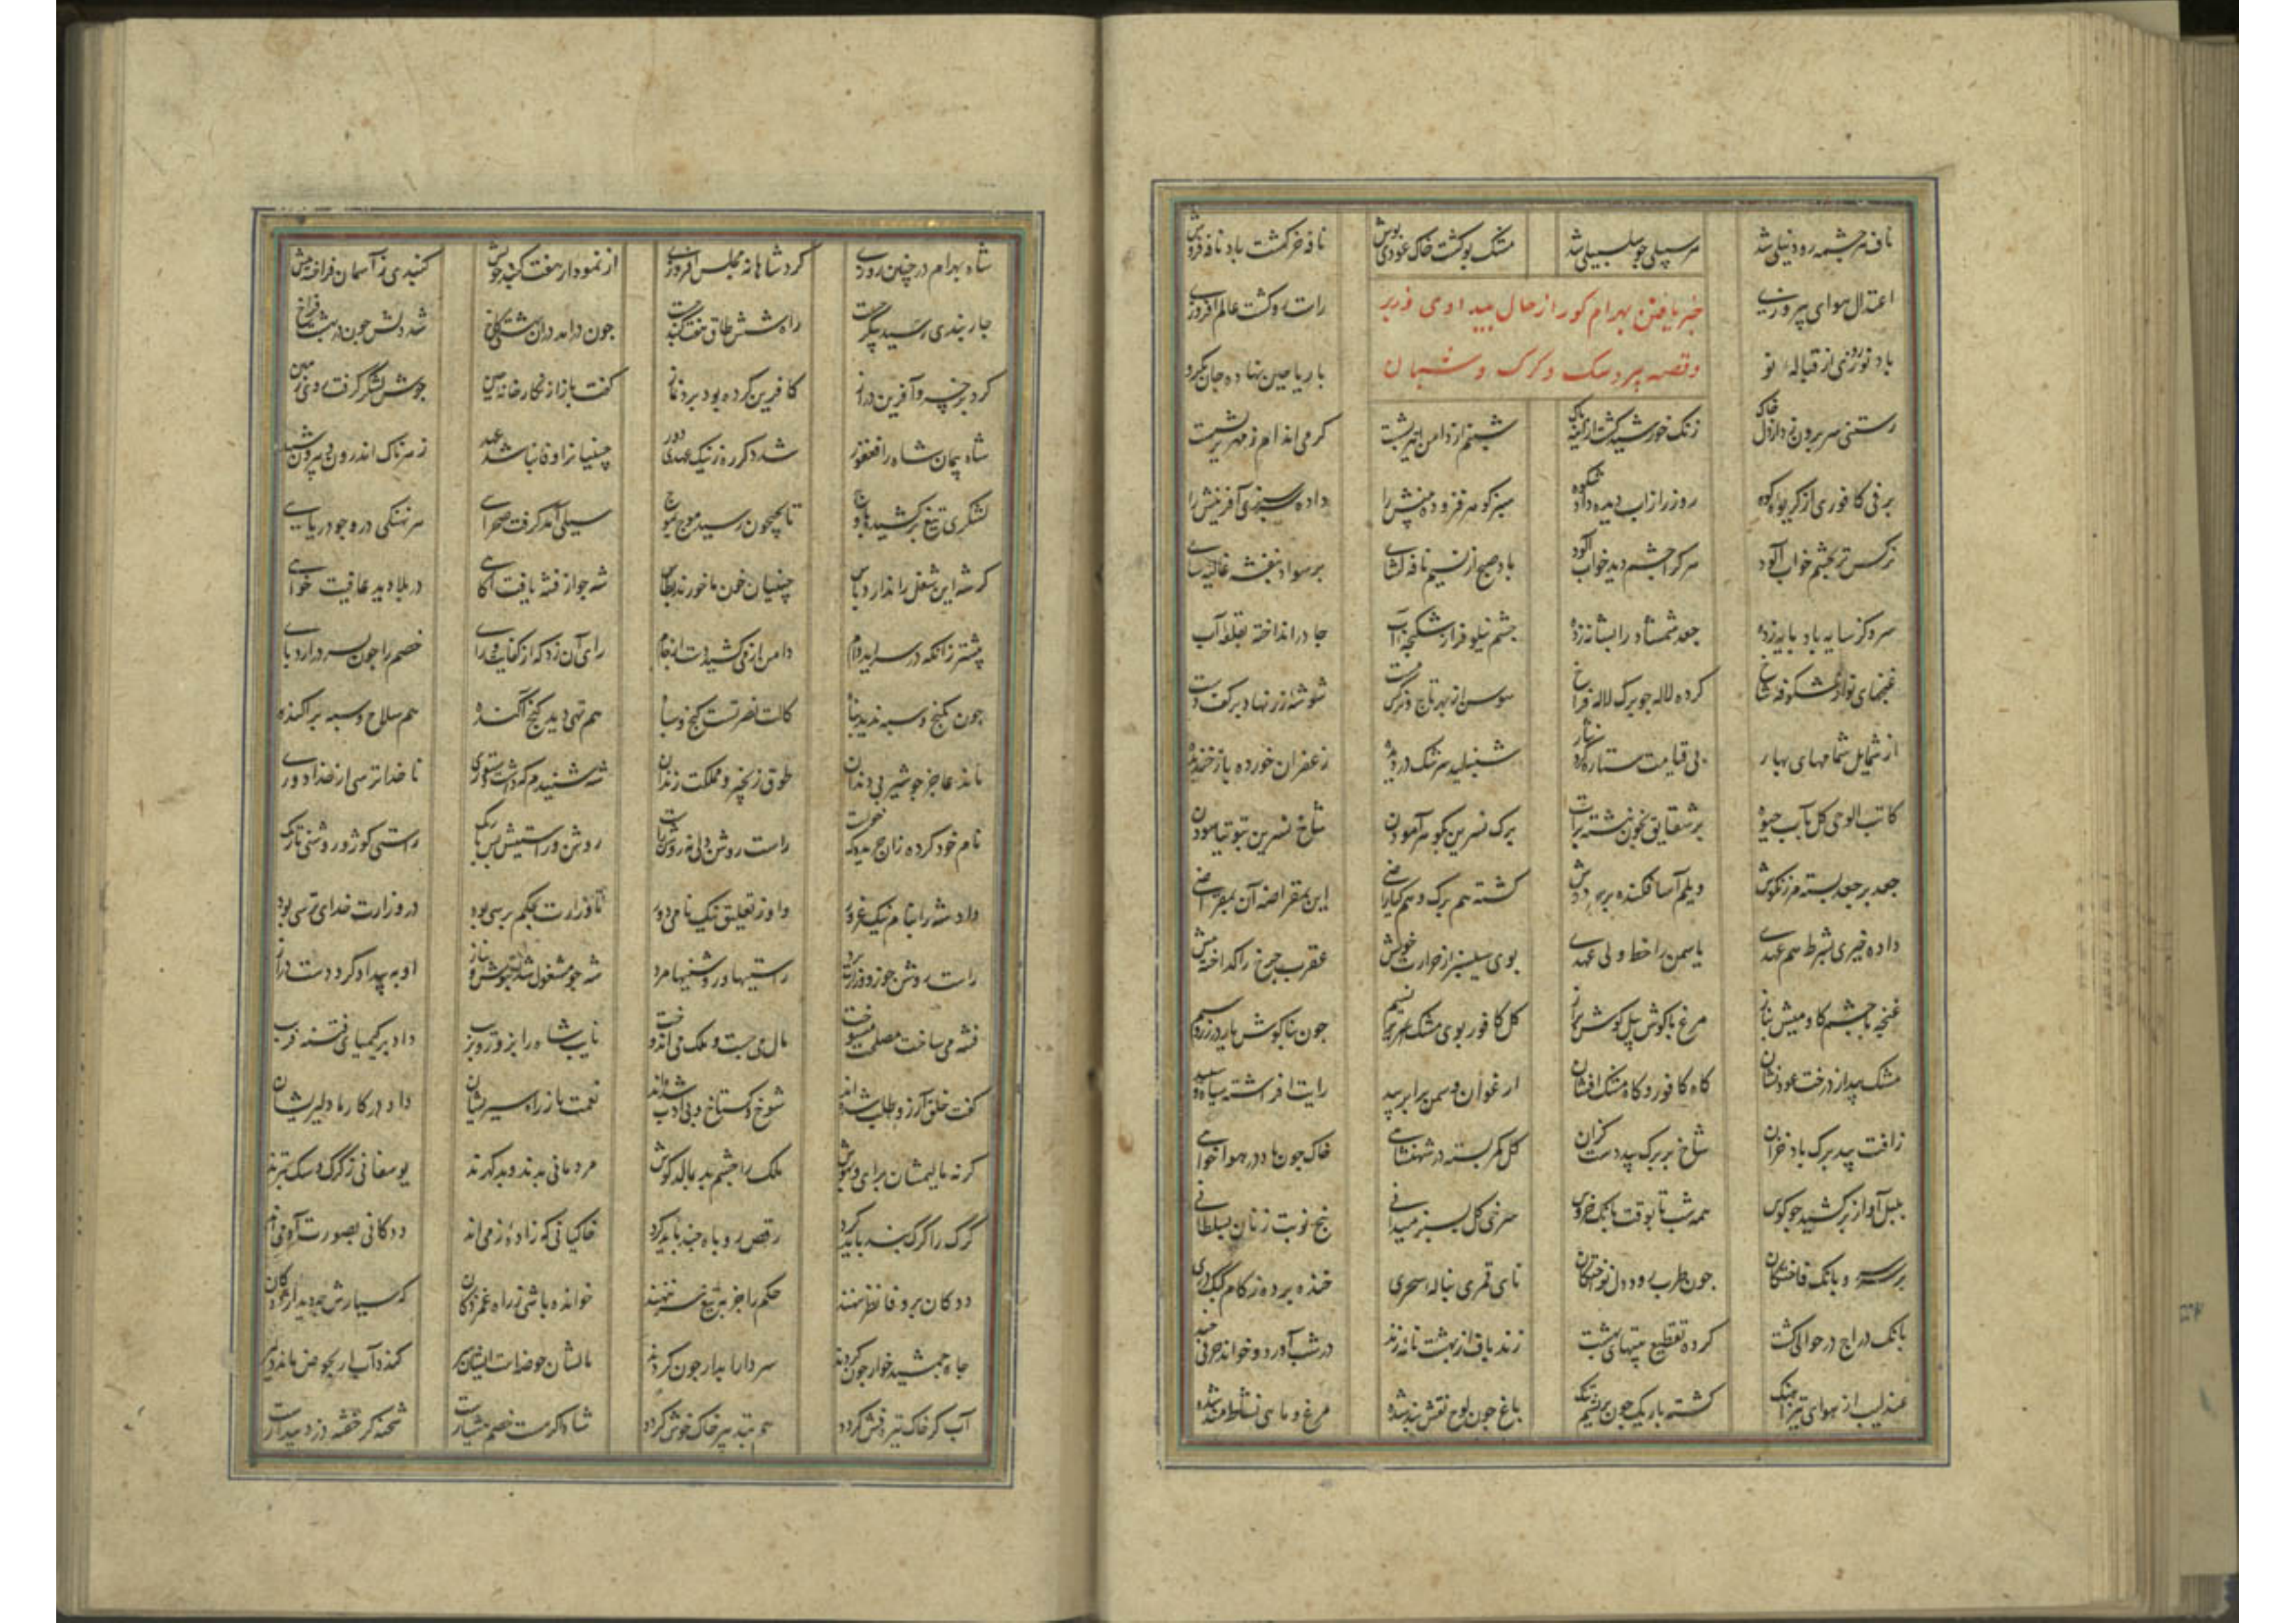 ناف هر چشمه رود نیلی شد هر سبیلی چو سلسبیلی شد مشک بو کشت خاک عودی پوش نافه خر کشت باد نافه فروش
خبر یافتن بهرام کور از حال بیدادی وزیر
وقصه پیر و سک و کرک و شبان
اعتدال هوای پیروزی راست رو کشت عالم افروزی
باد نوروزی از قباله نو با ریاحین نهاده جان بکرو
رستنی سر برون زد از دل خاک زنک خورشید کشت از آینه پاک شبنم از دامن اثیر نشست کرمی اندام زمهریر شکست
برف کافوری از کریوه کوه روز را زاب دیده داد شکوه سبزه کوهر فزوده بینش را داده سرسبزی آفرینش را
نرکس تر بچشم خواب آلود هر کرا چشم دید خواب آلود باد صبح از نسیم نافه کشای بر سواد بنفشه غالیه سای
سرو کز سایه بادبانه زده جعد شمشاد را بشانه زده چشم نیلوفر از شکنجه آب جان در انداخته بقلعه آب
غنچهای نو از شکوفه شاخ کرده لاله چو برک لاله فراخ سوسن از بهر تاج نرکس مست شوشه زر نهاد بر کف دست
از شمایل شمامهای بهار بی قیامت ستاره کرد نثار شنبلید سرشک در دیده زعفران خورده باز خندیده
کاتب الوحی کل بآب حیوة بر شقایق بخون نبشته برات برک نسرین کوهر آمودن شاخ نسرین بتوتیا سودن
جعد بر جعد بسته مرزنکوش دیلم آسا فکنده بر سر دوش کشته هم برک و هم کیا راضی این بمقراضه آن بمقراضی
داده خیری بشرط هم عهدی یاسمن را خط ولی عهدی بوی سیسنبر از حرارت خویش عقرب چرخ را کداخته نیش
غنچه با چشم کاومیش بناز مرغ با کوش پیل کوش براز کل کافور بوی مشک نسیم چون بناکوش یار در زر و سیم
مشک بید از درخت عود نشان کاه کافور و کاه مشک افشان ارغوان و سمن برابر بید رایت افراشته سیاه و سپید
زافت بید برک باد خزان شاخ بر برک بید دست کزان کل کمر بسته در شهنشاهی خاک چون باد در هوا خواهی
بلبل آواز برکشید چو کوس همه شب تا بوقت بانک خروس سرخی کل بسبز میدانی پنج نوبت زنان بسلطانی
بر سر سرو بانک فاختکان چون طرب رود دل نواختکان نای قمری بناله سحری خنده برده ز کام کبک دری
بانک دراج در حوالی کشت کرده تقطیع بیتهای بهشت زند باف از بهشت نامه زند در شب آورد و خواند حرفی چند
عندلیب از هوای تیز آهنک کشته باریک چون بریشم چنک باغ چون لوح نقش بند شده مرغ و ماهی نشاطمند شده
شاه بهرام در چنین روزی کرد شاهانه مجلس افروزی از نمودار هفت کنبد خویش کنبدی ز آسمان فراخته پیش
چار بندی رسید پیکر جست راه شش طاق هفت کنبد چون درامد دران بهشتی کاخ شد دلش چون در بهشت فراخ
کرد برخسرو آفرین دراز کافرین کرده بود برد نماز کفت باز از نکار خانه چین جوش لشکر کرفت روی زمین
شاه پیمان شاه را فغفور شد دکر ره ز نیک عهدی دور چینیان را وفا نباشد عهد زهرناک اندرون و بیرون شهد
لشکری تیغ برکشیده باوج تا بجیحون رسید موج بموج سیلی آمد کرفت صحرای هر نهنکی درو چو دریای
کر شه این شغل را ندارد پاس چینیان خون ما خورند بطاس شه چو از فتنه یافت آکاهی در بلا دید عافیت خواهی
پیشتر زانکه در سر اید دام دامن از می کشید و دست از جام رای آن زد که از کفایت و رای خصم را چون بسر درارد پای
چون بکنج و سپه ندید پناه کالت نصرتست کنج و سپاه هم تهی دید کنج آکنده هم سلاح و سپه پراکنده
ماند عاجز چو شیر بی دندان طوق زنجیر و مملکت زندان شه شنیدم که داشت دستوری ناخدا ترسی از خدا دوری
نام خود کرده زان جریده که خواست راست روشن ولی نه روشن و راست روشن و راستیش بس باریک راستی کوژ و روشنی تاریک
داد شه را بنام نیک غرور و او ز تعلیق نیک نامی دور تا وزارت بحکم نرسی بود در وزارت خدای ترسی بود
راست روشن چو زو وزارت برد راستیها و روشنیها مرد شه چو مشغول شد بنوش و بناز او به بیداد کرد دست دراز
فتنه می ساخت مصلحت می سوخت مال می جست و ملک می اندوخت نایب شاه را بزر و بزیب داد بر کیمیای فتنه فریب
کفت خلق آرزو طلب شده اند شوخ و کستاخ و بی ادب شده اند نعمت ما ز راه سیریشان داد در کارها دلیریشان
کر نه مالیمشان برای و بهوش ملک را چشم بد بمالد کوش مردمانی بدند و بد کهرند یوسفانی ز کرک و سک بترند
کرک را کرک بند باید کرد رقص روباه چند باید کرد خاکیانی که زاده زمی اند ددکانی بصورت آدمی اند
ددکان بر وفا نظر ننهند حکم را جز بتیغ سر ننهند خوانده باشی ز راه غمزدکان که سیاوش چه دید از ددکان
جاه جمشید خوار چون کردند سر دارا بدار چون کردند مالشان حوضه است ایشان سیر کنده آب ار بحوض ماند دیر
آب کز خاک تیره فش کردد هم بتدبیر خاک خوش کردد شاه اکر مست خصم هشیارست شحنه کر خفته دزد بیدارست